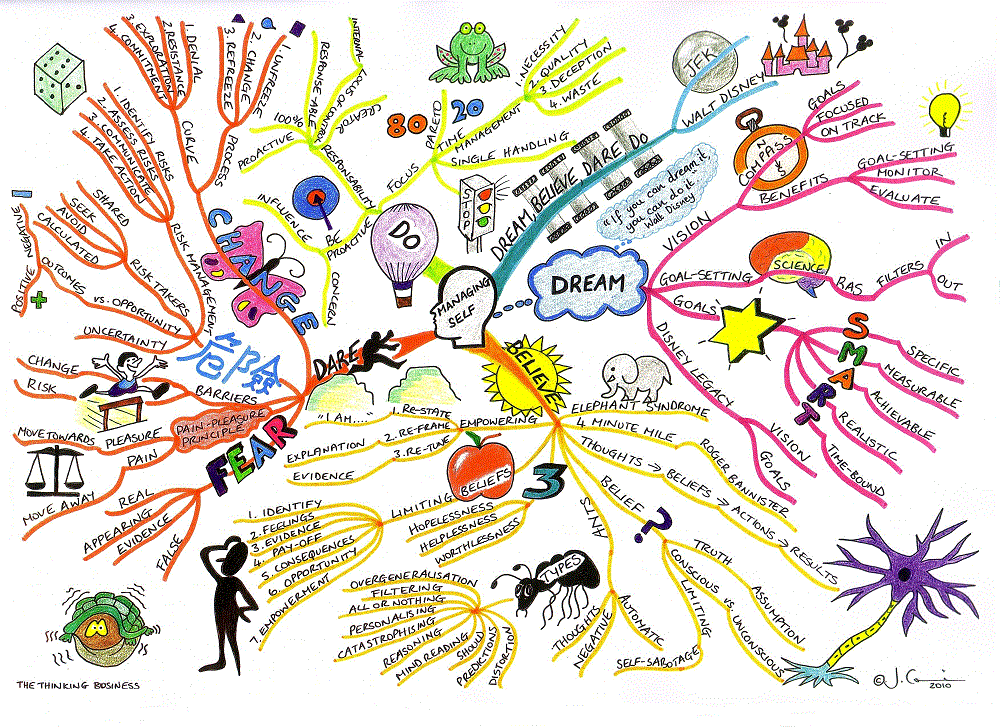 MANAGING
SELF
DREAM
VISION
COMPASS
N
GOALS
FOCUSED
ON TRACK
BENEFITS
GOAL-SETTING
MONITOR
EVALUATE
GOAL-SETTING
SCIENCE
RAS
FILTERS
IN
OUT
GOALS
SMART
SPECIFIC
MEASURABLE
ACHIEVABLE
REALISTIC
TIME-BOUND
DISNEY LEGACY
VISION
GOALS
"If you can dream it
you can do it"
Walt Disney
DREAM BELIEVE DARE DO
JFK
WALT DISNEY
BELIEVE
ELEPHANT SYNDROME
4 MINUTE MILE
ROGER BANNISTER
THOUGHTS → BELIEFS → ACTIONS → RESULTS
BELIEF
?
TRUTH
ASSUMPTION
CONSCIOUS vs. UNCONSCIOUS
LIMITING
SELF-SABOTAGE
ANTS
AUTOMATIC
NEGATIVE
THOUGHTS
TYPES
OVERGENERALISATION
FILTERING
ALL OR NOTHING
PERSONALISING
CATASTROPHISING
REASONING
MIND READING
SHOULD
PREDICTIONS
DISTORTION
3
HOPELESSNESS
HELPLESSNESS
WORTHLESSNESS
BELIEFS
EMPOWERING
1. RE-STATE
"I AM...."
2. RE-FRAME
EXPLANATION
3. RE-TUNE
EVIDENCE
LIMITING
1. IDENTIFY
2. FEELINGS
3. EVIDENCE
4. PAY-OFF
5. CONSEQUENCES
6. OPPORTUNITY
7. EMPOWERMENT
DARE
FEAR
FALSE
EVIDENCE
APPEARING
REAL
PAIN-PLEASURE
PRINCIPLE
PLEASURE
MOVE TOWARDS
PAIN
MOVE AWAY
BARRIERS
CHANGE
RISK
CHANGE
RISK MANAGEMENT
1. IDENTIFY RISKS
2. ASSESS RISKS
3. COMMUNICATE
4. TAKE ACTION
RISK TAKERS
SHARED
SEEK
AVOID
CALCULATED
vs. OPPORTUNITY
OUTCOMES
NEGATIVE
POSITIVE
UNCERTAINTY
PROCESS
1. UNFREEZE
2. CHANGE
3. REFREEZE
CURVE
1. DENIAL
2. RESISTANCE
3. EXPLORATION
4. COMMITMENT
DO
BE
PROACTIVE
INFLUENCE
CONCERN
RESPONSIBILITY
100%
PROACTIVE
RESPONSE-ABLE
INTERNAL LOCUS OF CONTROL
CREATOR
FOCUS
PARETO
80 20
TIME
MANAGEMENT
1. NECESSITY
2. QUALITY
3. DECEPTION
4. WASTE
SINGLE HANDLING
STOP
THE THINKING BUSINESS
2010